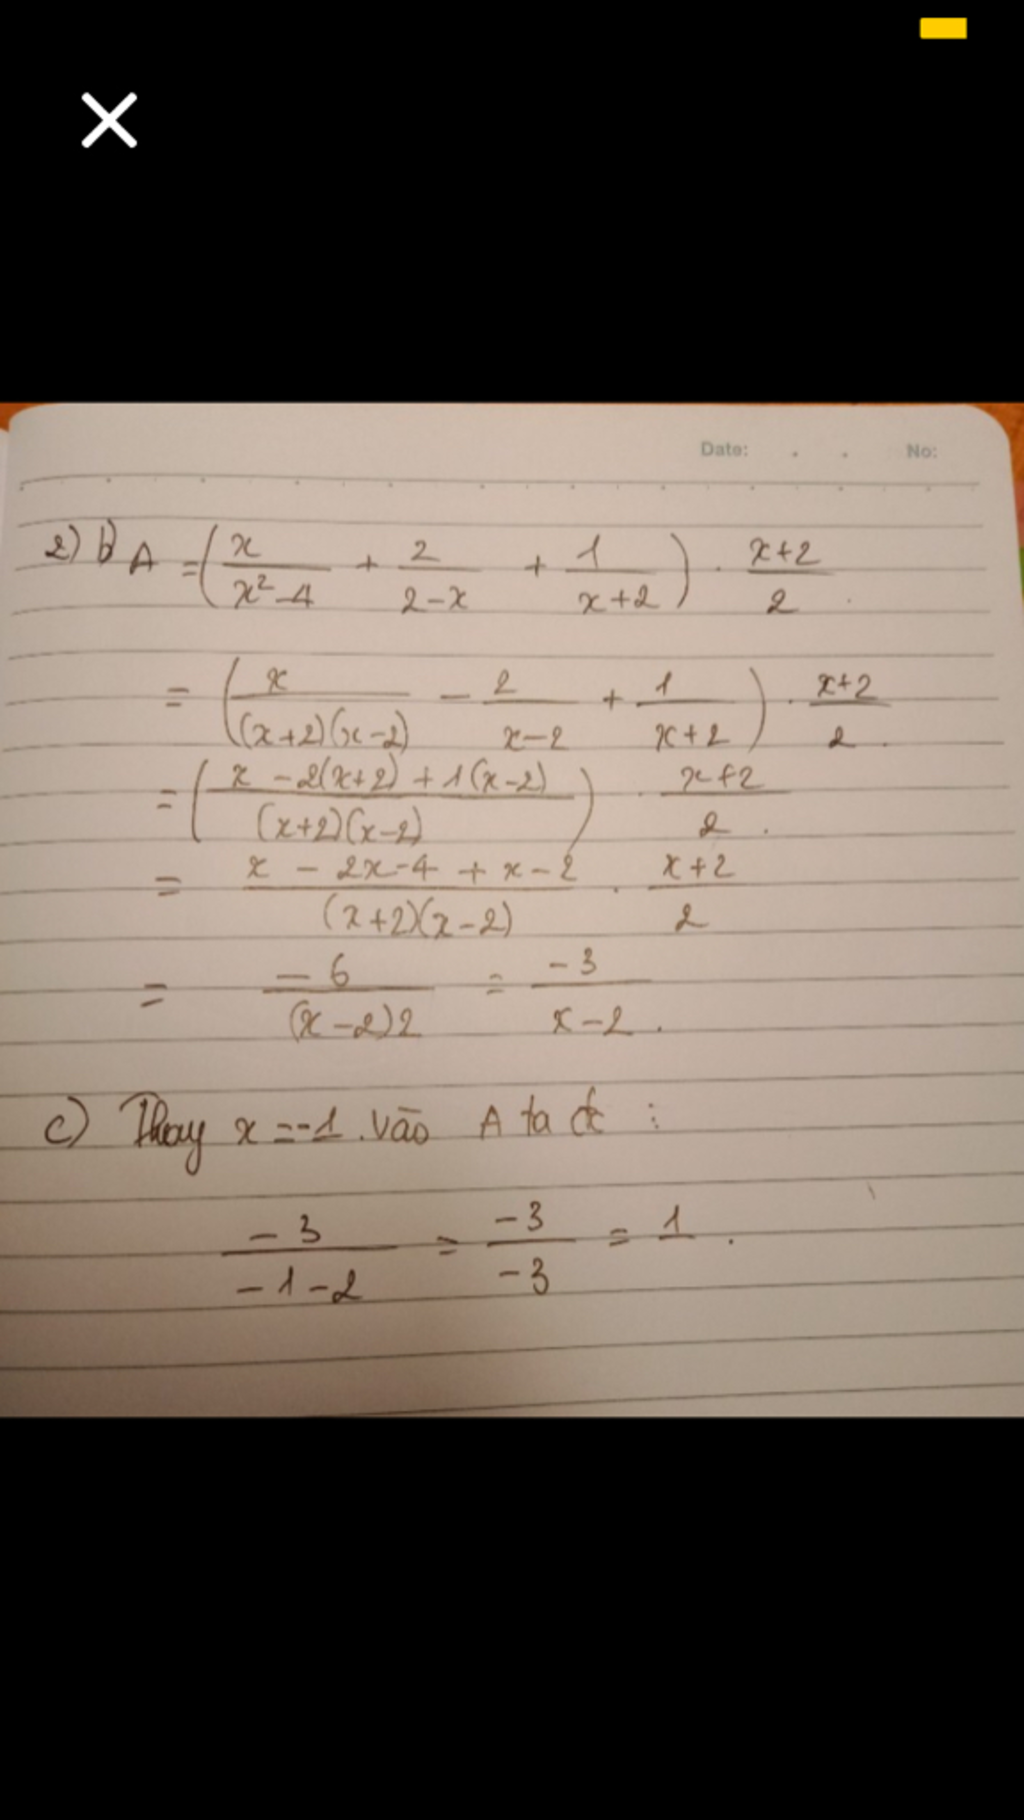 Date: . . No:
2) b) A = (x/(x²-4) + 2/(2-x) + 1/(x+2)) . (x+2)/2 .
= (x/((x+2)(x-2)) - 2/(x-2) + 1/(x+2)) . (x+2)/2 .
= ((x - 2(x+2) + 1(x-2))/((x+2)(x-2))) . (x+2)/2 .
= (x - 2x-4 + x-2)/((x+2)(x-2)) . (x+2)/2
= -6/((x-2)2) = -3/(x-2) .
c) Thay x = -1 vào A ta đc :
-3/(-1-2) = -3/-3 = 1 .